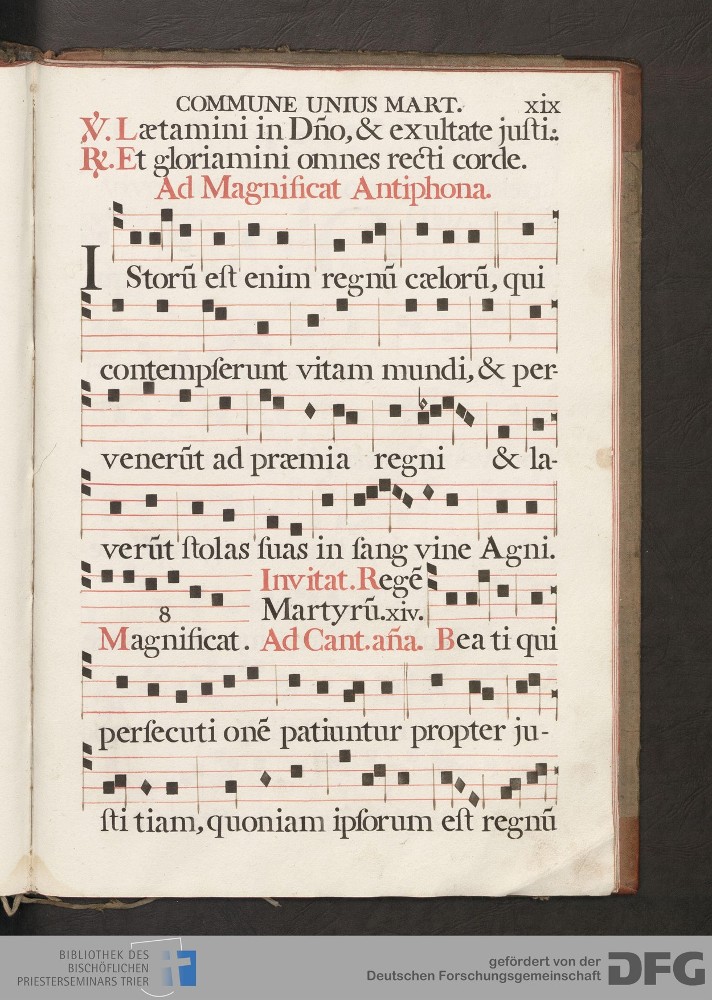 COMMUNE UNIUS MART. xix
℣. Lætamini in Dño, & exultate juſti.:
℟. Et gloriamini omnes recti corde.
Ad Magnificat Antiphona.
IStorū eſt enim regnū cælorū, qui
contempſerunt vitam mundi, & per-
venerūt ad præmia regni & la-
verūt ſtolas ſuas in ſang vine Agni.
Invitat. Regē
8 Martyrū. xiv.
Magnificat. Ad Cant. aña. Bea ti qui
perſecuti onē patiuntur propter ju-
ſti tiam, quoniam ipſorum eſt regnū
BIBLIOTHEK DES
BISCHÖFLICHEN
PRIESTERSEMINARS TRIER
gefördert von der
Deutschen Forschungsgemeinschaft DFG